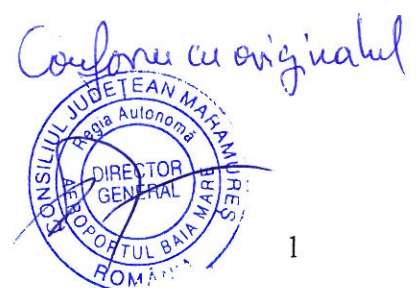 Conform cu originalul
CONSILIUL JUDEȚEAN MARAMUREȘ
Regia Autonomă
DIRECTOR
GENERAL
AEROPORTUL BAIA MARE
ROMÂNIA
1